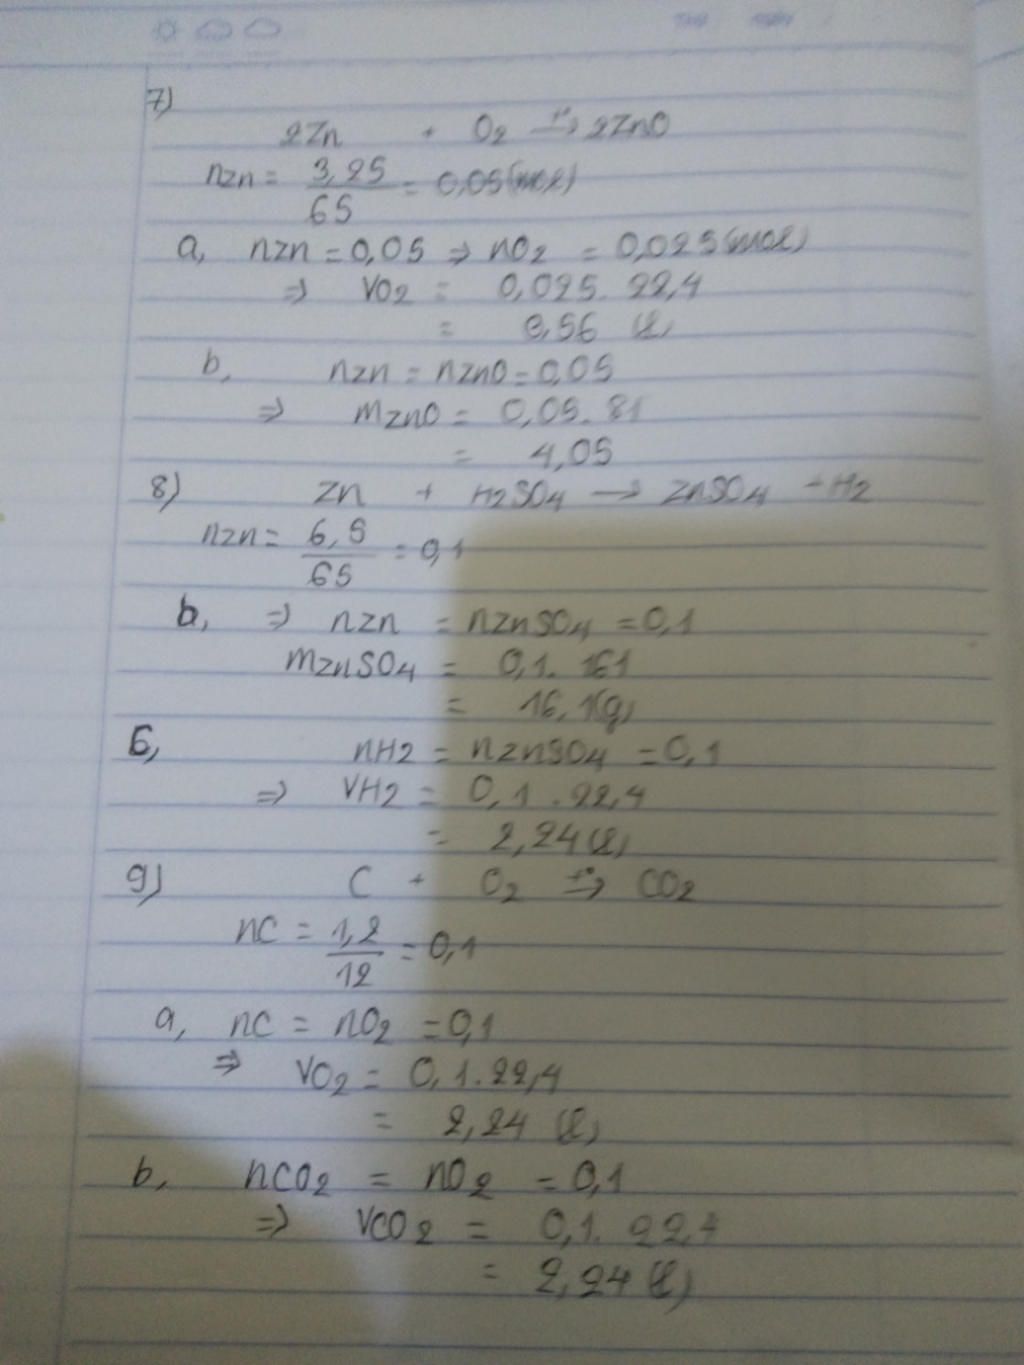 7)
2Zn + O2 t°→ 2ZnO
nzn = 3,25/65 = 0,05(mol)
a, nzn = 0,05 => nO2 = 0,025(mol)
=> VO2 = 0,025. 22,4
= 0,56 (l)
b, nzn = nznO = 0,05
=> mznO = 0,05. 81
= 4,05
8) Zn + H2SO4 → ZnSO4 - H2
nzn = 6,5/65 = 0,1
b, => nzn = nznSO4 = 0,1
mznSO4 = 0,1. 161
= 16,1(g)
6, nH2 = nznSO4 = 0,1
=> VH2 = 0,1 . 22,4
= 2,24(l)
9) C + O2 t°→ CO2
nC = 1,2/12 = 0,1
a, nC = nO2 = 0,1
=> VO2 = 0,1.22,4
= 2,24 (l)
b, nCO2 = nO2 = 0,1
=> VCO2 = 0,1. 22,4
= 2,24(l)